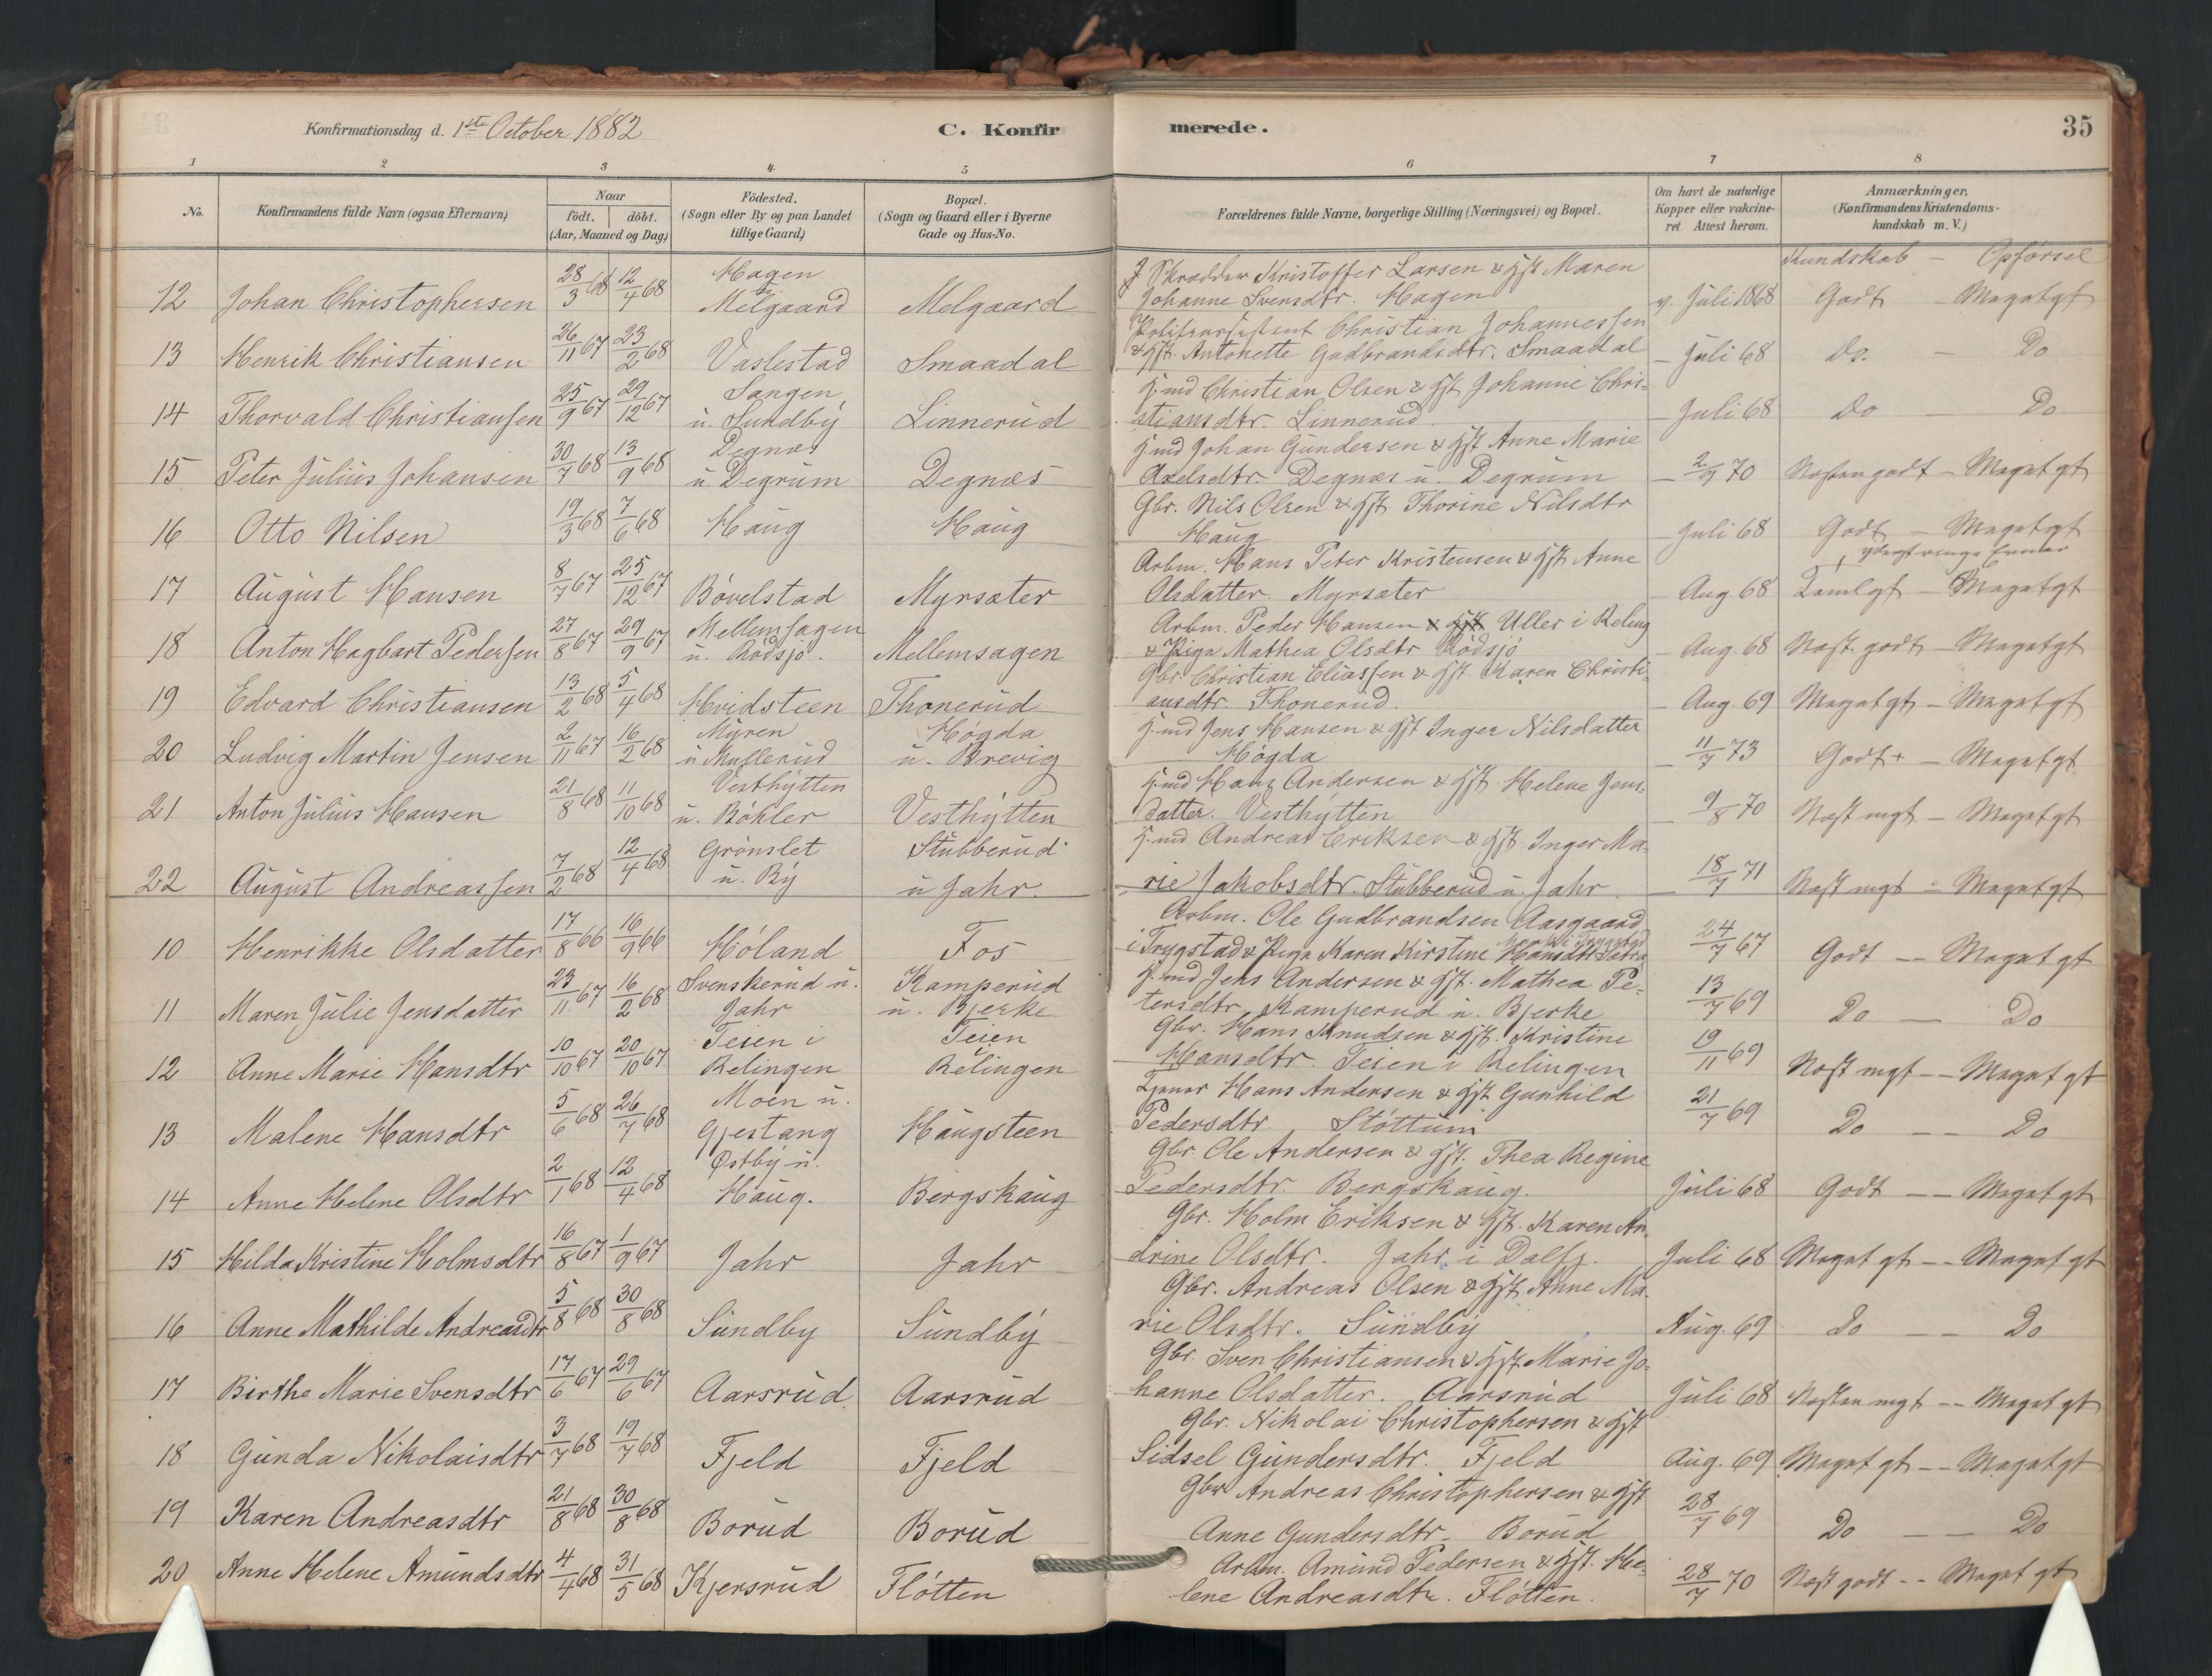 Konfirmationsdag d. 1ste October 1882 C. Konfirmerede. 35
1 2 3 4 5 6 7 8
No. Konfirmandens fulde Navn (ogsaa Efternavn) Naar födt. döbt. (Aar, Maaned og Dag) Födested. (Sogn eller By og paa Landet tillige Gaard) Bopæl. (Sogn og Gaard eller i Byerne Gade og Hus-No. Forældrenes fulde Navne, borgerlige Stilling (Næringsvei) og Bopæl. Om havt de naturlige Kopper eller vakcineret Attest herom. Anmærkninger. (Konfirmandens Kristendomskundskab m. V.)
Kundskab - Opførsel
12 Johan Christophersen 28/3 68 12/4 68 Hagen Melgaard Melgaard Skrædder Kristoffer Larsen & Hst Maren
Johanne Svensdtr. Hagen v. Juli 1868 Godt - Megetgt
13 Henrik Christiansen 26/11 67 23/2 68 Vaslestad Smaadal Christian Johannessen
& Hst. Antonette Gudbrandsdtr. Smaadal - Juli 68 Do. - Do
14 Thorvald Christiansen 25/9 67 29/12 67 Sangen, u. Sundby Linnerud H.md Christian Olsen & Hst Johanne Chri-
stiansdtr. Linnerud - Juli 68 Do - Do
15 Peter Julius Johansen 30/7 68 13/9 68 Degnæs u Degrum Degnæs H.md Johan Gundersen & Hst Anne Marie
Axelsdtr. Degnæs u. Degrum - 2/9 70 Næsten godt - Megetgt
16 Otto Nilsen 19/3 68 7/6 68 Haug Haug Gbr. Nils Olsen & Hst Thorine Nilsdtr
Haug - Juli 68 Godt - Megetgt
17 August Hansen 8/7 67 25/12 67 Bøvelstad Myrsæter Arbm. Hans Peter Kristensen & Hst Anne
Olsdatter. Myrsæter - Aug 68 Temlgt - Megetgt
18 Anton Hagbart Pedersen 27/8 67 29/9 67 Mellemsagen u. Rødsjø. Mellemsagen Arbm. Peder Hansen Uller i Reling
& Pige Mathea Olsdtr Rødsjø - Aug. 68 Næst. godt - Megetgt
19 Edvard Christiansen 13/2 68 5/4 68 Hvidsteen Thonerud Gbr. Christian Eliassen & Hst. Karen Christi-
ansdtr. Thonerud. - Aug. 69 Megetgt - Megetgt
20 Ludvig Martin Jensen 2/11 67 16/2 68 Myren u Mullerud Høgda u. Brevig H.md Jens Hansen & Hst Inger Nilsdatter
Høgda - 11/7 73 Godt + - Megetgt
21 Anton Julius Hansen 21/8 68 11/10 68 Vesthytten u. Bøhler Vesthytten H.md Hans Andersen & Hst Helene Jens-
datter. Vesthytten - 9/8 70 Næst mgt - Megetgt
22 August Andreassen 7/2 68 12/4 68 Grønslet u. By Stubberud u Jahr. H.md Andreas Eriksen & Hst. Inger Ma-
rie Jakobsdtr. Stubberud u. Jahr - 18/7 71 Næst mgt - Megetgt
10 Henrikke Olsdatter 17/8 66 16/9 66 Høland Fos Arbm. Ole Gudbrandsen Aasgaard
i Trygstad & Pige Karen Kirstine Hansdtr 24/7 67 Godt -- Megetgt
11 Maren Julie Jensdatter 23/11 67 16/2 68 Svenskerud u. Jahr Kamperud u. Bjerke H.md Jens Andersen & Hst. Mathea Pe-
tersdtr. Kamperud u. Bjerke 13/7 69 Do - Do
12 Anne Marie Hansdtr 10/10 67 20/10 67 Teien i Relingen Teien Relingen Gbr. Hans Knudsen & Hst. Kristine
Hansdtr. Teien i Relingen 19/11 69 Næst mgt -- Megetgt
13 Malene Hansdtr 5/6 68 26/7 68 Moen u. Gjestang Haugsteen Tjener Hans Andersen & Hst Gunhild
Pedersdtr. Støttum 21/7 69 Do -- Do
14 Anne Helene Olsdtr 2/1 68 12/4 68 Østby u. Haug. Bergskaug Gbr. Ole Andersen & Hst. Thea Regine
Pedersdtr. Bergskaug. Juli 68 Godt -- Megetgt
15 Hilda Kristine Holmsdtr 16/8 67 1/9 67 Jahr Jahr Gbr. Holm Eriksen & Hst. Karen An-
drine Olsdtr. Jahr i Dalfj. Juli 68 Megetgt -- Megetgt
16 Anne Mathilde Andreasdtr 5/8 68 30/8 68 Sundby Sundby Gbr. Andreas Olsen & Hst Anne Ma-
rie Olsdtr. Sundby Aug. 69 Do -- Do
17 Birthe Marie Svensdtr 17/6 67 29/6 67 Aarsrud. Aarsrud Gbr. Sven Christiansen & Hst Marie Jo-
hanne Olsdatter. Aarsrud Juli 68 Næsten mgt -- Megetgt
18 Gunda Nikolaisdtr 3/7 68 19/7 68 Fjeld Fjeld Gbr. Nikolai Christophersen & Hst
Sidsel Gundersdtr. Fjeld Aug. 69 Megetgt -- Megetgt
19 Karen Andreasdtr 21/8 68 30/8 68 Borud Borud Gbr Andreas Christophersen & Hst
Anne Gundersdtr. Borud 28/7 69 Do -- Do
20 Anne Helene Amundsdtr 4/4 68 31/5 68 Kjersrud Fløtten Arbm. Amund Pedersen & Hst. He-
lene Andreasdtr. Fløtten. 28/7 70 Næst godt -- Megetgt